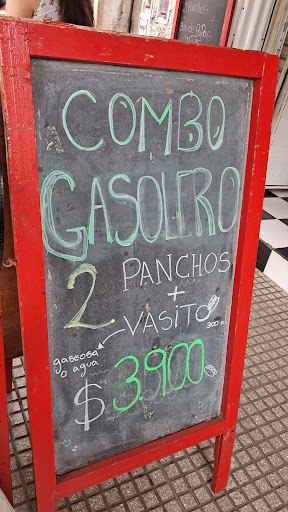 COMBO
GASOLERO
2 PANCHOS
+
VASITO
300
gaseosa
o agua
$3.900